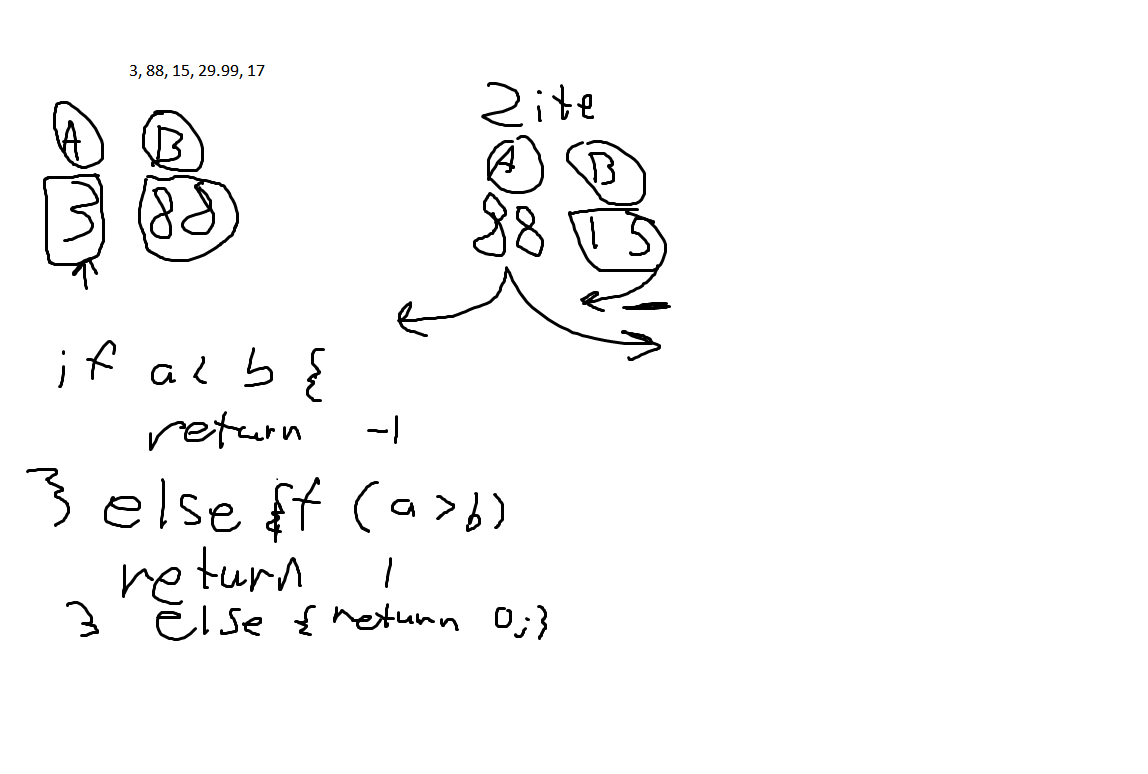 3, 88, 15, 29.99, 17
A B
3 88
2 ite
A B
88 15
if a < b {
return -1
} else if (a > b)
return 1
} else { return 0;}